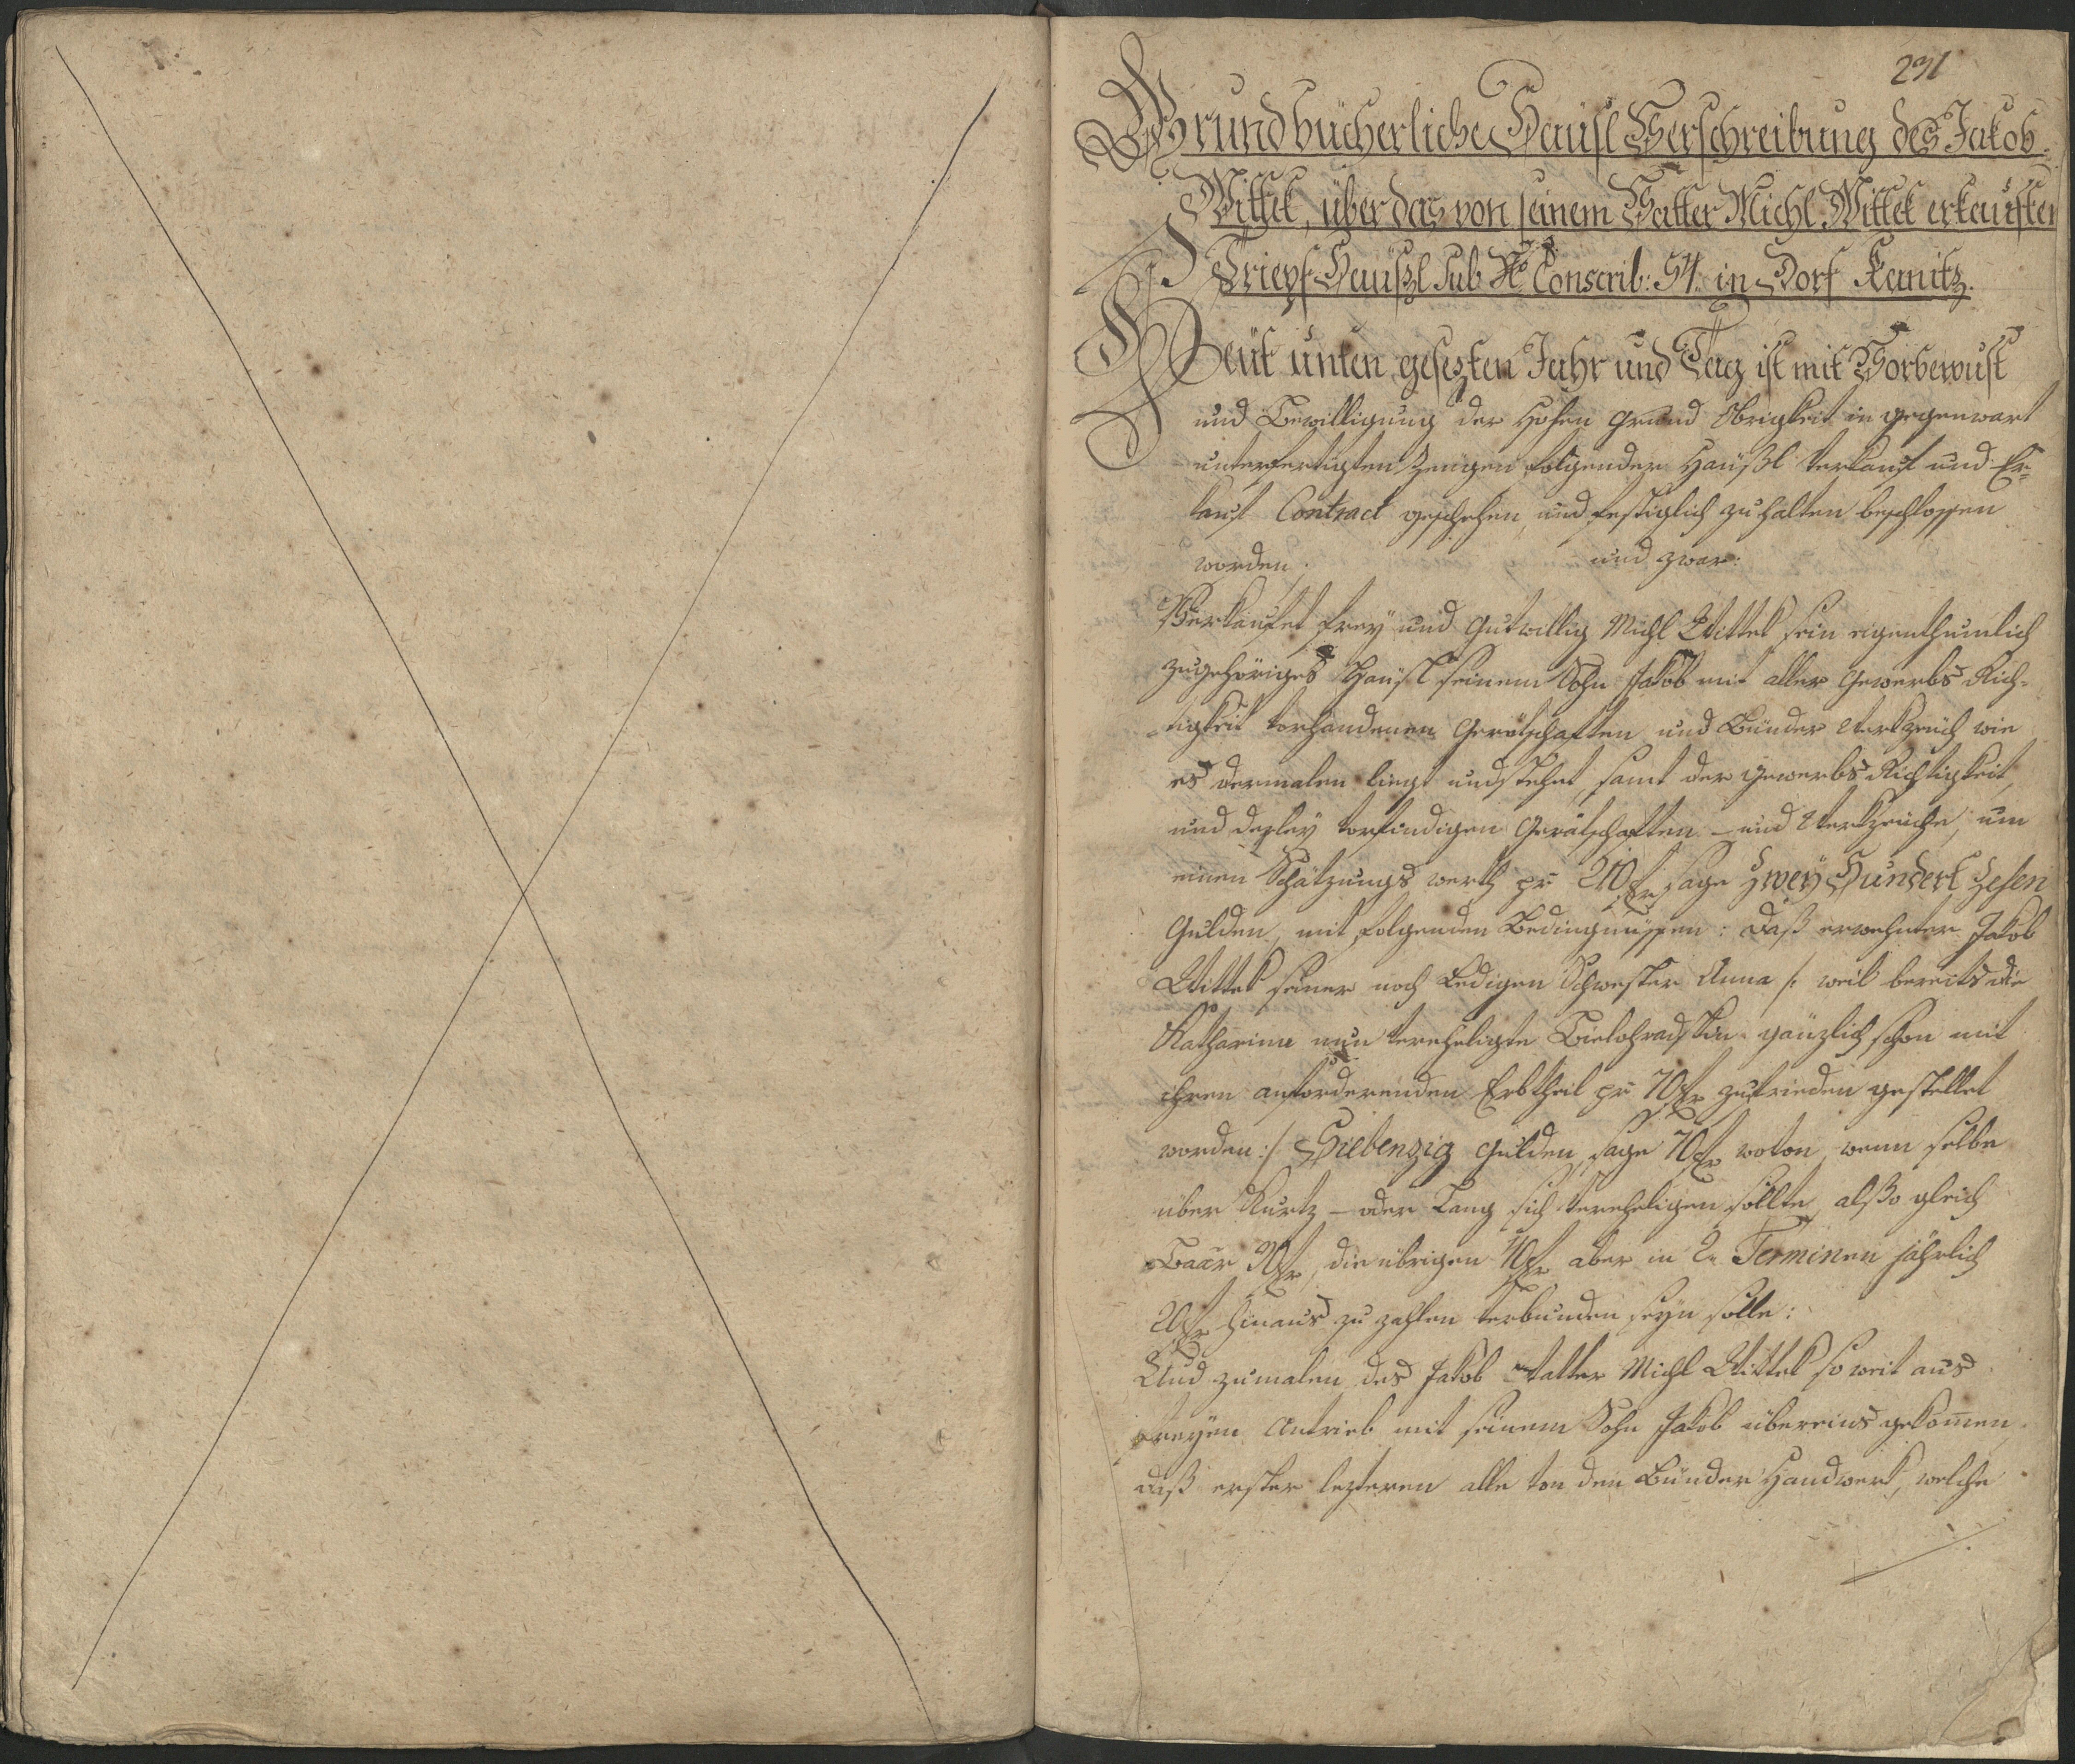 231
Grundbücherliche Haüsl Verschreibung des Jakob
Wittek, über das von seinem Vatter Michl Wittek erkauften
Haüßl sub No Conscrib: 54. in Dorf Kanitz.
Heüt unten gesezten Jahr und Tag ist mit Vorbewust
und Bewilligung der Hohen Grund Obrigkeit in gegenwart
unterfertigten Zeugen folgender Haüßl Verkauf und Er¬
kauf Contract geschehen, und festiglich zu halten beschlossen
worden. und zwar:
Verkaufet frey und gutwillig Michl Wittek sein eigenthumlich
zugehöriges Haüsl seinem Sohn Jakob mit aller Gewerbs Rich¬
tigkeit vorhandenen Gerätschaften und Binder Werkzeuch wie
es dermalen liegt und stehet, samt der Gewerbs Richtigkeit,
und vorfindigen Gerätschaften - und Werkzeuche, um
einen Schätzungs werth pr 210 fr sage Zwey Hundert Zehen
Gulden, mit folgenden Bedingnüssen: daß erwehnter Jakob
Wittek seiner noch Ledigen Schwester Anna /: weil bereits die
Katharina nun verehligte gänzlich schon mit
ihren anforderenden Erbtheil pr 70 fr zufrieden gestellet
worden :/ Siebenzig Gulden, sage 70 fr wovon, wenn selbe
über Kurtz - oder Lang sich verehligen sollte, alßo gleich
Baar 30 fr, die übrigen 40 fr aber in 2 Terminen jährlich
20 fr hinaus zu zahlen verbunden seyn solle:
Und zumalen des Jakob Vatter Michl Wittek so weit aus
freyen Antrieb mit seinem Sohn Jakob übereins gekommen,
daß erster lezteren alle von den Binder Handwerk, welche